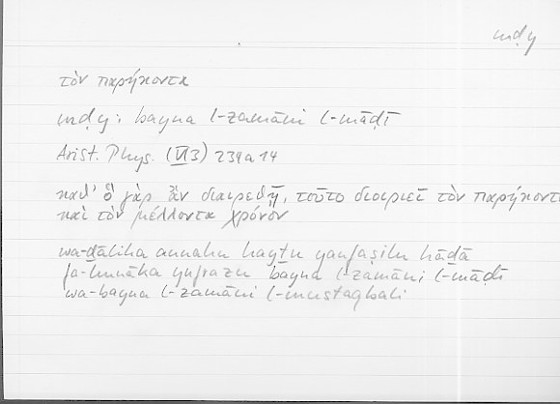 mḍy
τὸν παρήκοντα
mḍy: bayna l-zamāni l-māḍī
Arist. Phys. (VI 3) 234a14
καθ' ὃ γὰρ ἂν διαιρεθῇ, τοῦτο διοριεῖ τὸν παρήκοντα
καὶ τὸν μέλλοντα χρόνον
wa-ḏālika annahu ḥayṯu yanfaṣilu hāḏā
fa-hunāka yufrazu bayna l-zamāni l-māḍī
wa-bayna l-zamāni l-mustaqbali